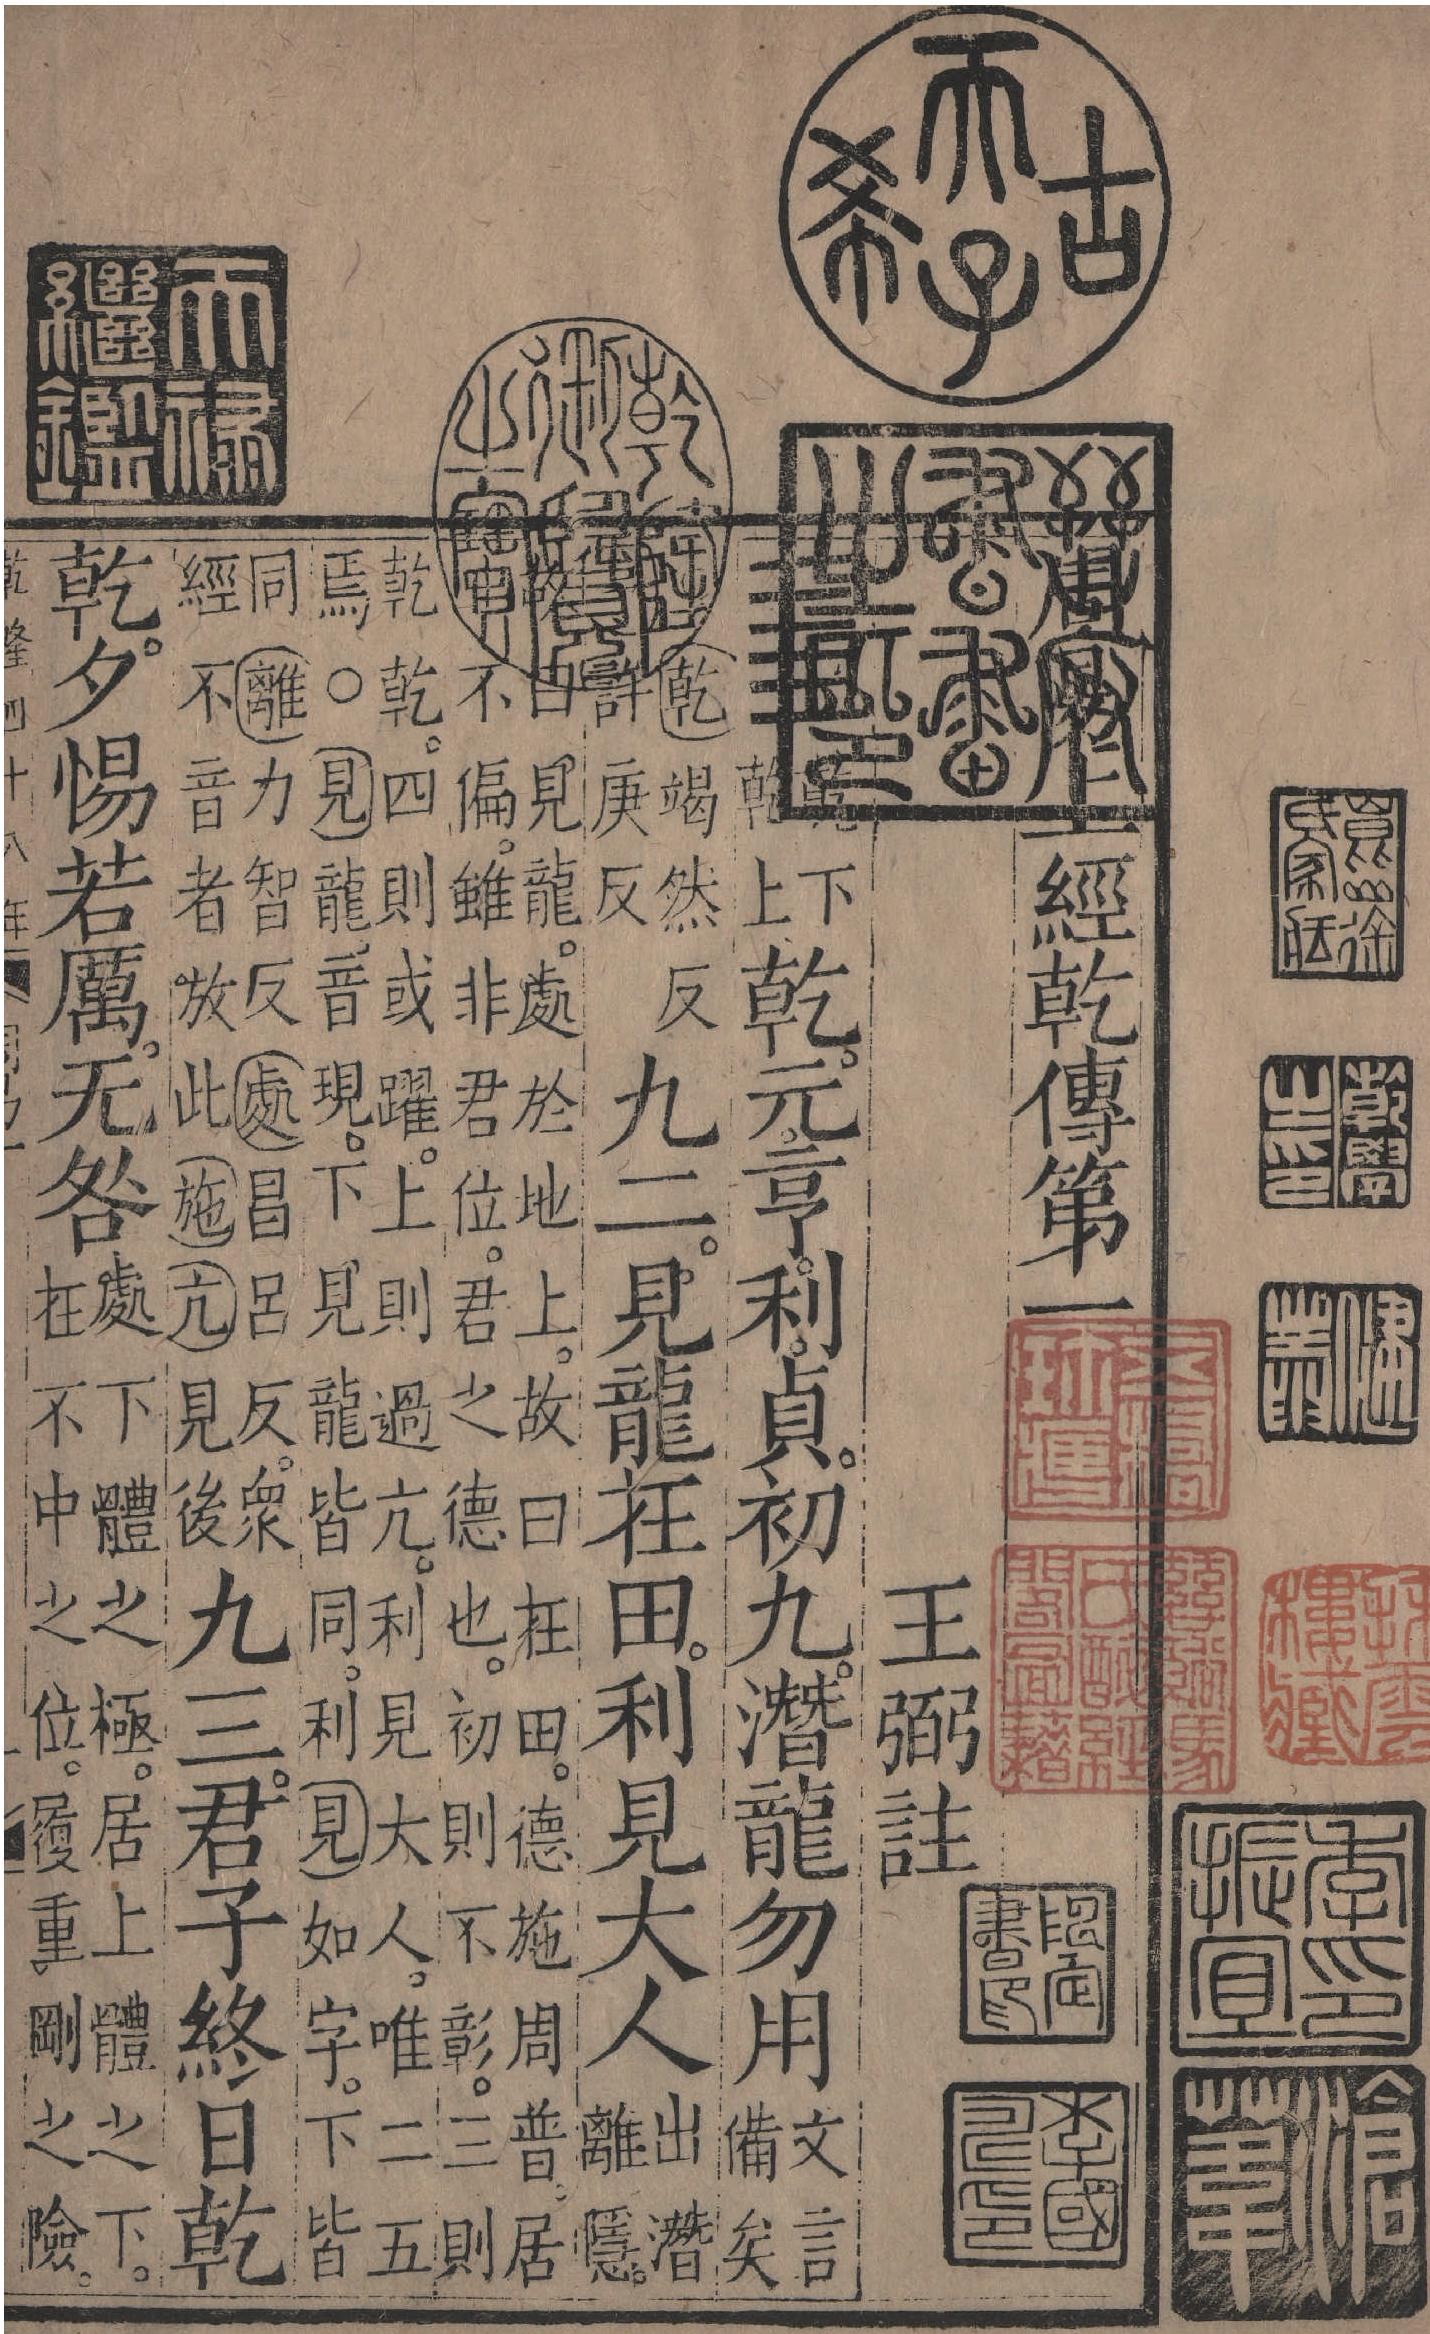 古希天子
天祿繼鑑
乾隆御覽之寶
周易上經乾傳第一
王弼註
乾下乾上乾。元。亨。利。貞。初九。潛龍勿用文言備矣
乾竭然反許庚反九二。見龍在田。利見大人出潛離隱。故
曰見龍。處於地上。故曰在田。德施周普。居
不偏。雖非君位。君之德也。初則不彰。三則
乾乾。四則或躍。上則過亢。利見大人。唯二五
焉○見龍音現。下見龍皆同。利見如字。下皆
同離力智反處昌呂反。眾
經不音者放此施亢見後九三。君子終日乾
乾。夕惕若厲。无咎處下體之極。居上體之下。
在不中之位。履重剛之險。
乾隆四十八年
季振宜印
滄葦